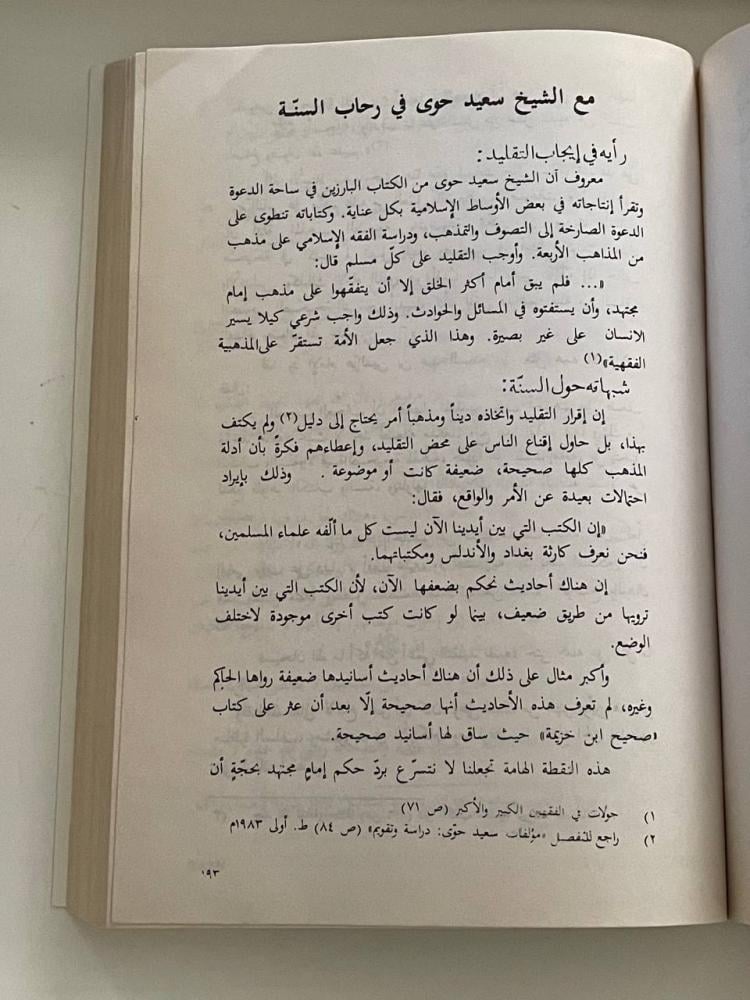 مع الشيخ سعيد حوى في رحاب السنّة
رأيه في إيجاب التقليد:
معروف أن الشيخ سعيد حوى من الكتاب البارزين في ساحة الدعوة
وتقرأ إنتاجاته في بعض الأوساط الإسلامية بكل عناية. وكتاباته تنطوى على
الدعوة الصارخة إلى التصوف والتمذهب، ودراسة الفقه الإسلامي على مذهب
من المذاهب الأربعة. وأوجب التقليد على كلّ مسلم قال:
«... فلم يبق أمام أكثر الخلق إلا أن يتفقّهوا على مذهب إمام
مجتهد، وأن يستفتوه في المسائل والحوادث. وذلك واجب شرعي كيلا يسير
الانسان على غير بصيرة. وهذا الذي جعل الأمة تستقرّ على المذهبية
الفقهية»(١)
شبهاته حول السنّة:
إن إقرار التقليد واتخاذه ديناً ومذهباً أمر يحتاج إلى دليل(٢) ولم يكتف
بهذا، بل حاول إقناع الناس على محض التقليد، وإعطاءهم فكرةً بأن أدلة
المذهب كلها صحيحة، ضعيفة كانت أو موضوعة . وذلك بإيراد
احتمالات بعيدة عن الأمر والواقع، فقال:
«إن الكتب التي بين أيدينا الآن ليست كل ما ألّفه علماء المسلمين،
فنحن نعرف كارثة بغداد والأندلس ومكتباتهما.
إن هناك أحاديث نحكم بضعفها الآن، لأن الكتب التي بين أيدينا
ترويها من طريق ضعيف، بينما لو كانت كتب أخرى موجودة لاختلف
الوضع.
وأكبر مثال على ذلك أن هناك أحاديث أسانيدها ضعيفة رواها الحاكم
وغيره، لم تعرف هذه الأحاديث أنها صحيحة إلّا بعد أن عثر على كتاب
«صحيح ابن خزيمة» حيث ساق لها أسانيد صحيحة.
هذه النقطة الهامة تجعلنا لا نتسرّع بردّ حكم إمامٍ مجتهد بحجّةٍ أن
١) جولات في الفقهين الكبير والأكبر (ص ٧١)
٢) راجع للتفصل «مؤلفات سعيد حوّى: دراسة وتقويم» (ص ٨٤) ط. أولى ١٩٨٣م
١٩٣